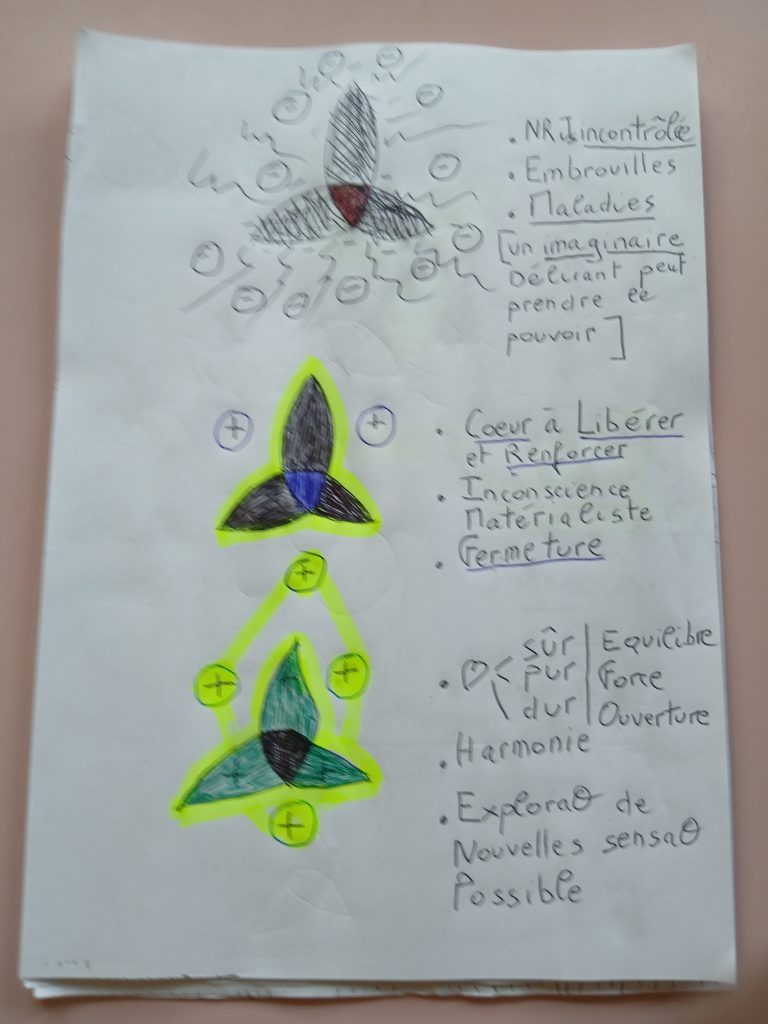 . NRJ incontrôlée
. Embrouilles
. Maladies
[un imaginaire
Délirant peut
prendre le
pouvoir]
. Coeur à Libérer
et Renforcer
. Inconscience
Matérialiste
. Fermeture
. ♡ < sûr | Equilibre
pur | Force
dur | Ouverture
. Harmonie
. Exploraθ de
Nouvelles sensaθ
Possible